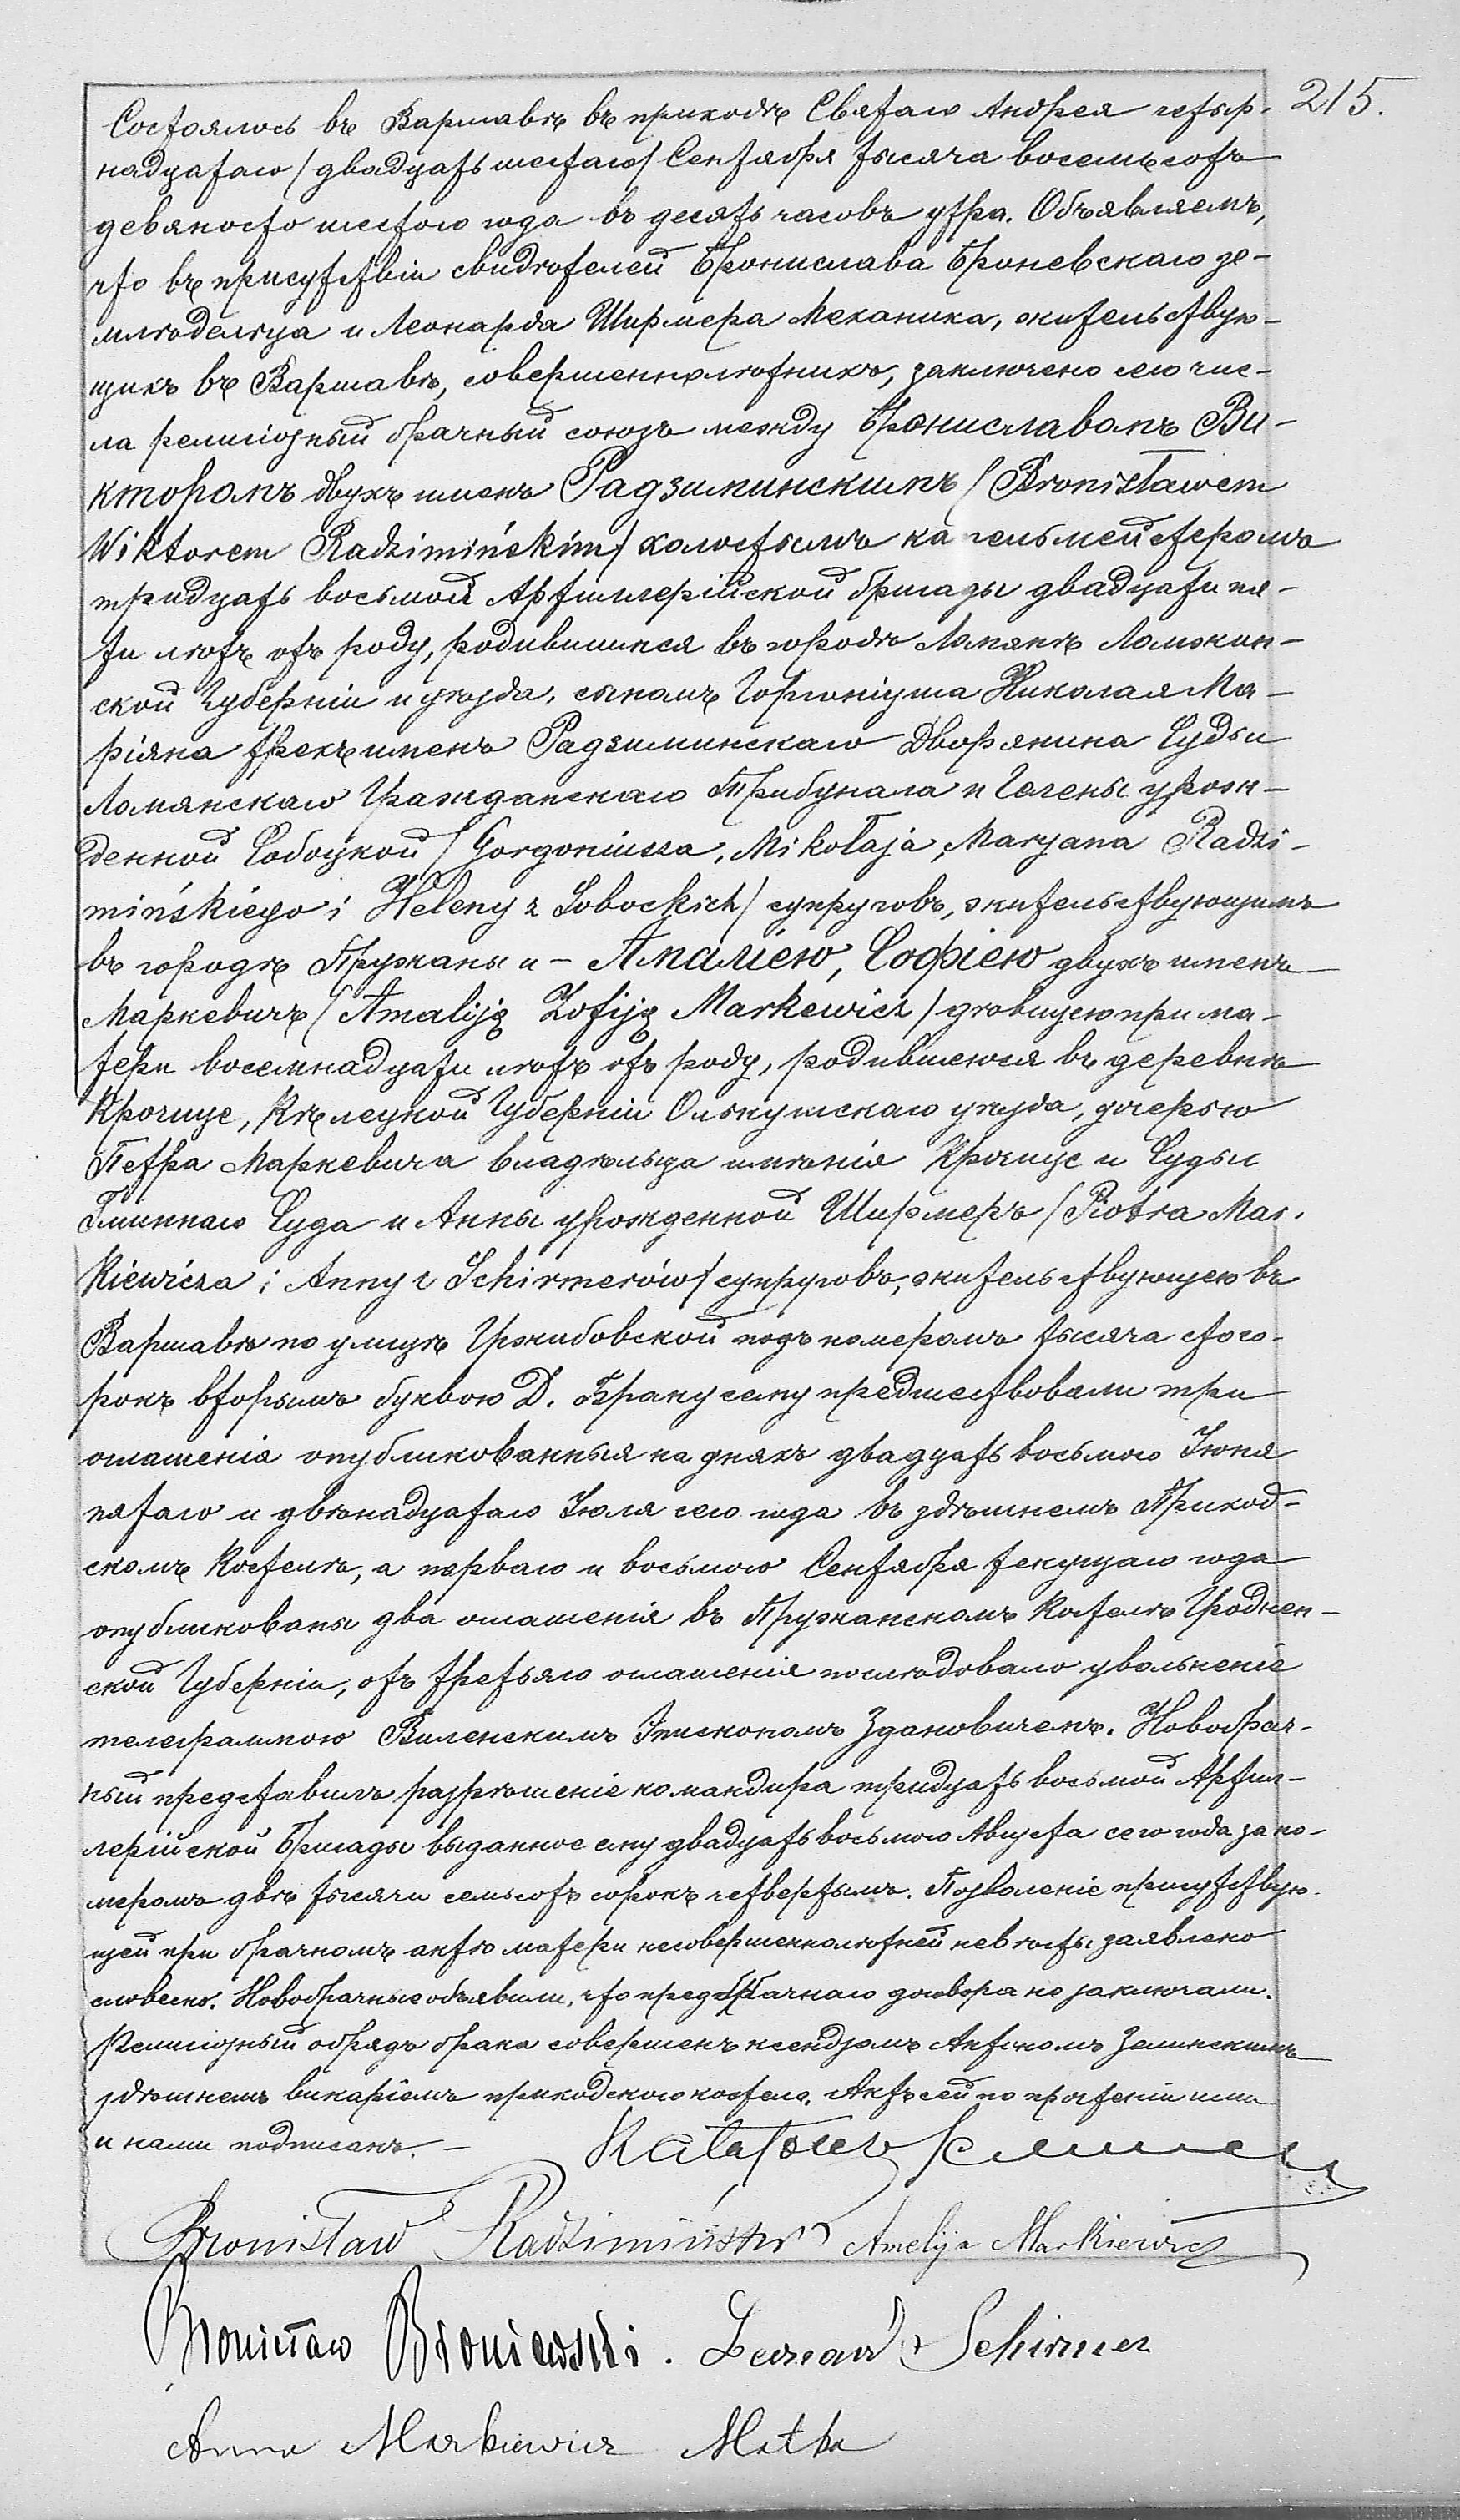 215.
Состоялось въ Варшавѣ въ приходѣ Святаго Андрея четыр-
надцатаго /двадцать шестаго/ Сентября тысяча восемьсотъ
девяносто шестого года въ десять часовъ утра. Объявляемъ,
что въ присутствіи свидѣтелей Бронислава Броневскаго зе-
мледѣльца и Леонарда Ширмера Механика, жительствую-
щихъ въ Варшавѣ, совершеннолѣтнихъ, заключено сего чис-
ла религіозный брачный союзъ между Брониславомъ Ви-
кторомъ двухъ именъ Радзиминскимъ /Bronisławem
Wiktorem Radzimińskim/ холостымъ капельмейстеромъ
тридцать восьмой Артиллерійской бригады двадцати пя-
ти лѣтъ отъ роду, родившимся въ городѣ Ломжѣ Ломжин-
ской Губерніи и уѣзда, сыномъ Горгоніуша Николая Ма-
ріяна трехъ именъ Радзиминскаго Дворянина Судьи
Ломжанскаго Гражданскаго Трибунала и Гелены урож-
денной Собоцкой /Gorgoniusza, Mikołaja, Maryana Radzi-
mińskiego i Heleny z Sobockich/ супруговъ, жительствующимъ
въ городѣ Пружаны и - Амаліею, Софіею двухъ именъ
Маркевичъ /Amaliją Zofiją Markewicz/ дѣвицею при ма-
тери восемнадцати лѣтъ отъ роду, родившеюся въ деревнѣ
Крочице, Кѣлецкой Губерніи Олькушскаго уѣзда, дочерью
Петра Маркевича владѣльца имѣнія Крочице и Судьи
Гминнаго Суда и Анны урожденной Ширмеръ /Piotra Mar-
kiewicza i Anny z Schirmerów/ супруговъ, жительствующею въ
Варшавѣ по улицѣ Гржибовской подъ номеромъ тысяча стосо-
рокъ вторымъ буквою D. Браку сему предшествовали три
оглашенія опубликованныя на дняхъ двадцать восьмого Іюня
пятаго и двѣнадцатаго Іюля сего года въ здѣшнемъ Приход-
скомъ Костелѣ, а перваго и восьмого Сентября текущаго года
опубликованы два оглашенія въ Пружанскомъ Костелѣ Гроднен-
ской Губерніи, отъ третьяго оглашенія послѣдовало увольненіе
телеграммою Виленскимъ Епископомъ Здановичемъ. Новобрач-
ный представилъ разрѣшеніе командира тридцать восьмой Артил-
лерійской Бригады выданное ему двадцать восьмого Августа сего года за но-
меромъ двѣ тысячи семьсотъ сорокъ четвертымъ. Позволеніе присутствую-
щей при брачномъ актѣ матери несовершеннолѣтней невѣсты заявлено
словесно. Новобрачные объявили, что предбрачнаго договора не заключали.
Религіозный обрядъ брака совершенъ ксендзомъ Антономъ Зелинскимъ
здѣшнемъ викаріемъ приходскаго костела. Актъ сей по прочтеніи ими
и нами подписанъ. -
Bronisław Radzimiński Amelija Markiewicz
Bronisław Broniewski. Leonard Schirmer
Anna Markiewicz Matka